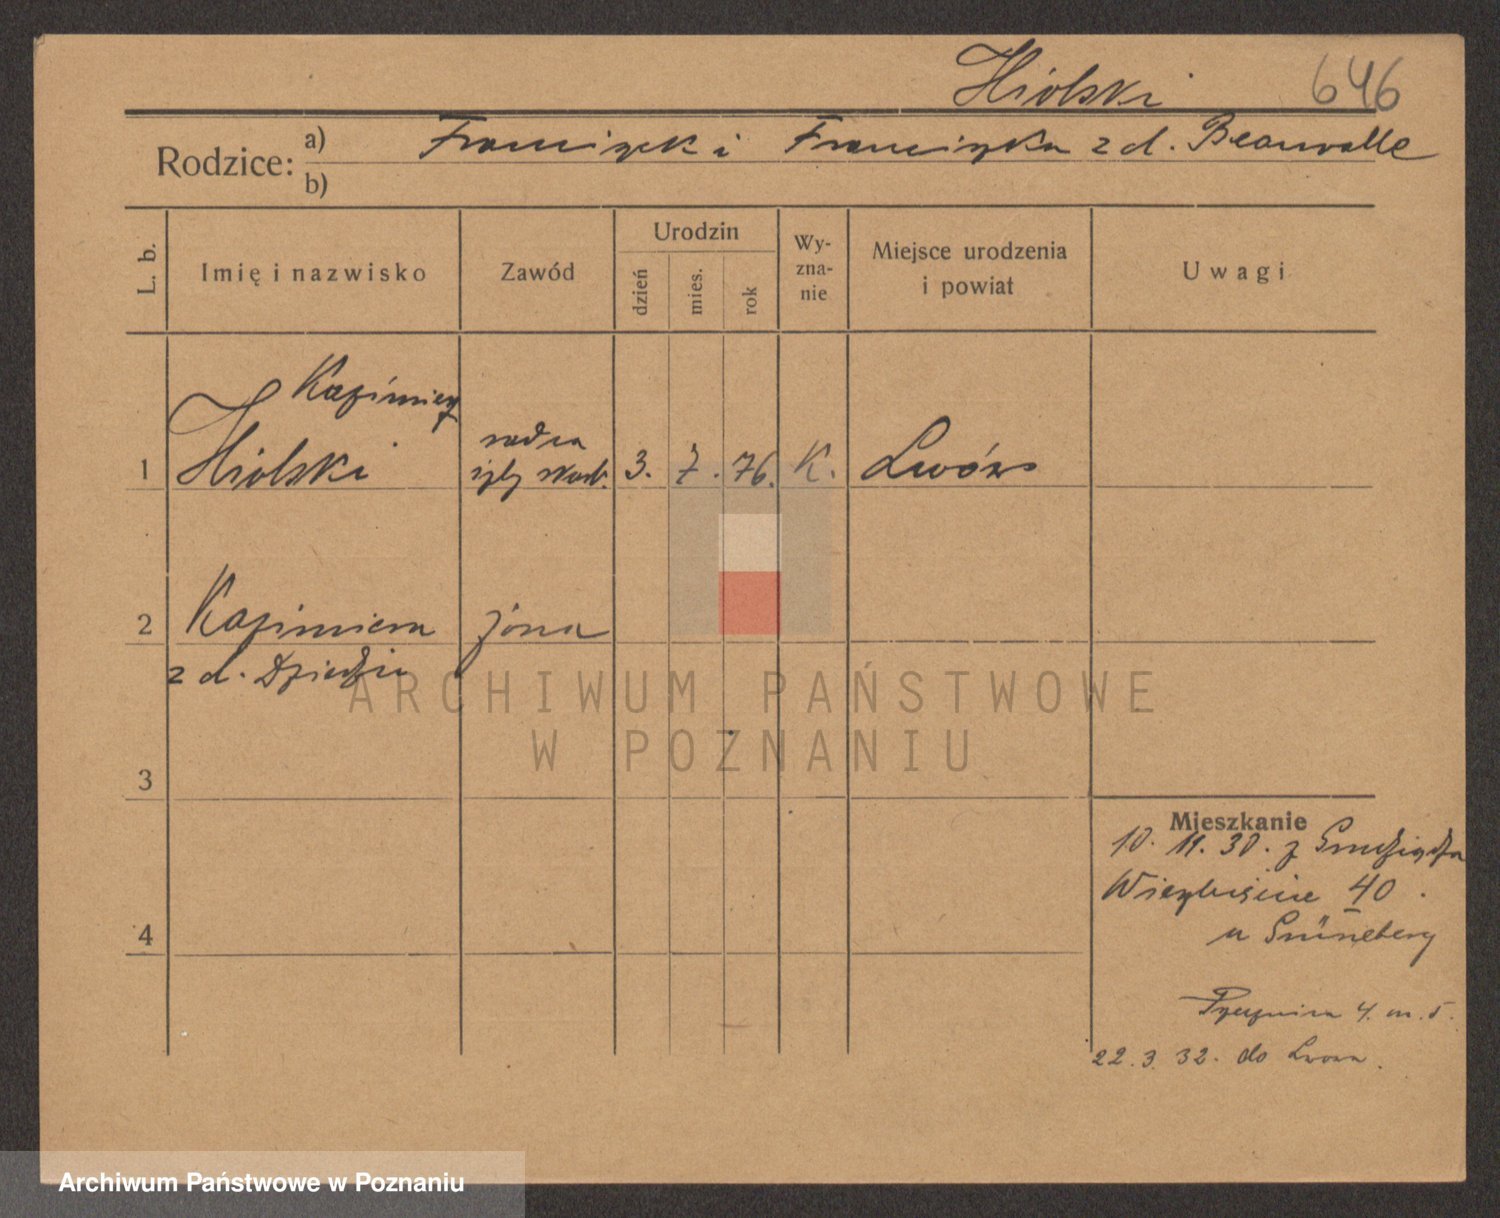 Hiolski 646
Rodzice: a) Franciszek i Franciszka z d. Beauvalle
b)
L. b. Imię i nazwisko Zawód Urodzin dzień mies. rok Wyznanie Miejsce urodzenia i powiat Uwagi
Kazimierz
radca
1 Hiolski izby skarb. 3. 7. 76. K. Lwów
2 Kazimiera żona
z d.
ARCHIWUM PAŃSTWOWE
W POZNANIU
3
Mieszkanie
10. 11. 30. z Grudziądza
40
4
u Grüneberg
4. m. 5.
22.3.32. do Lwowa.
Archiwum Państwowe w Poznaniu